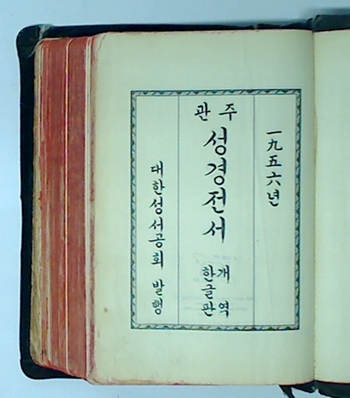 一九五六년
관주
성경전서
개역
한글판
대한성서공회 발행